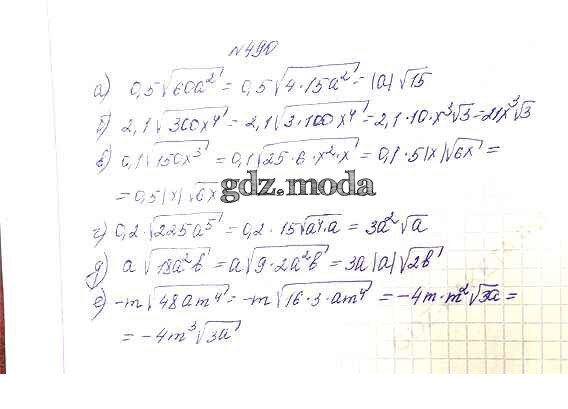 №490
а) 0,5√60a² = 0,5√4·15a² = |a|√15
б) 2,1√300x⁴ = 2,1√3·100x⁴ = 2,1·10·x³√3 = 21x³√3
в) 0,1√150x³ = 0,1√25·6·x²·x = 0,1·5|x|√6x =
= 0,5|x|√6x
gdz.moda
г) 0,2√225a⁵ = 0,2·15√a⁴·a = 3a²√a
д) a√18a²b = a√9·2a²b = 3a|a|√2b
е) -m√48am⁴ = -m√16·3·am⁴ = -4m·m²√3a =
= -4m³√3a